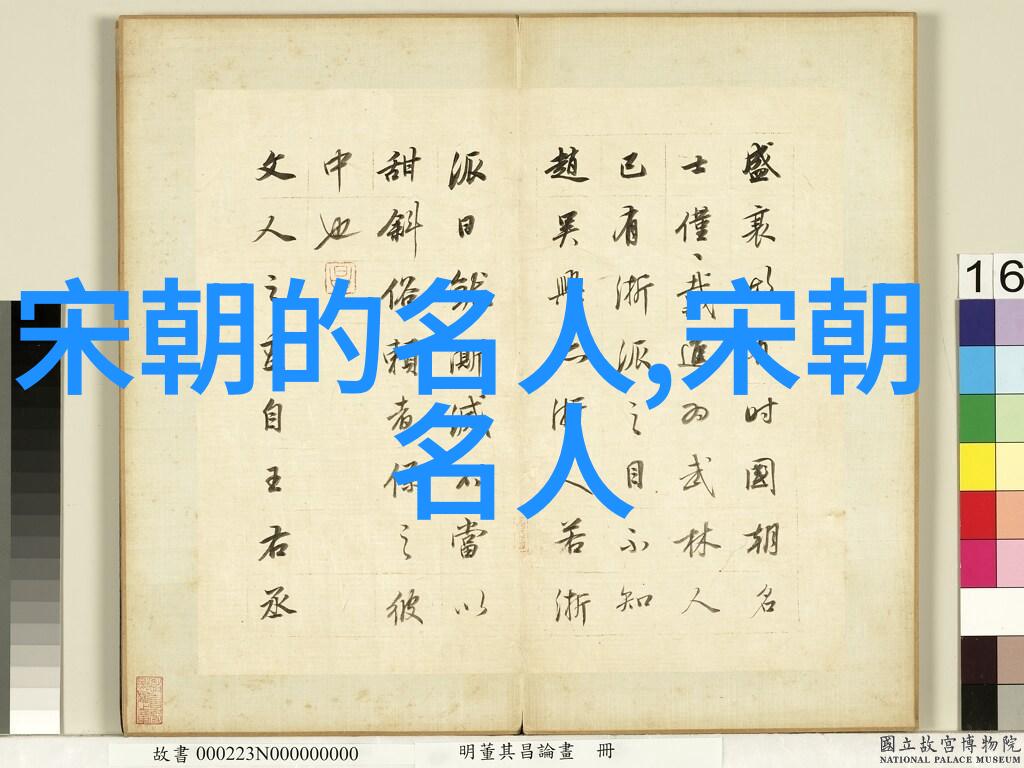 宋朝的名人,宋朝
名人
盛衰時國朝名
士僅〻戴進為武林人
已有浙派之目不知
趙吳興亦浙人若浙
派日就澌滅不當以
甜斜俗賴者係之彼
中也
文人之畫自王右丞
16
故書 000223N000000000
明董其昌論畫 冊
國立故宮博物院
NATIONAL PALACE MUSEUM